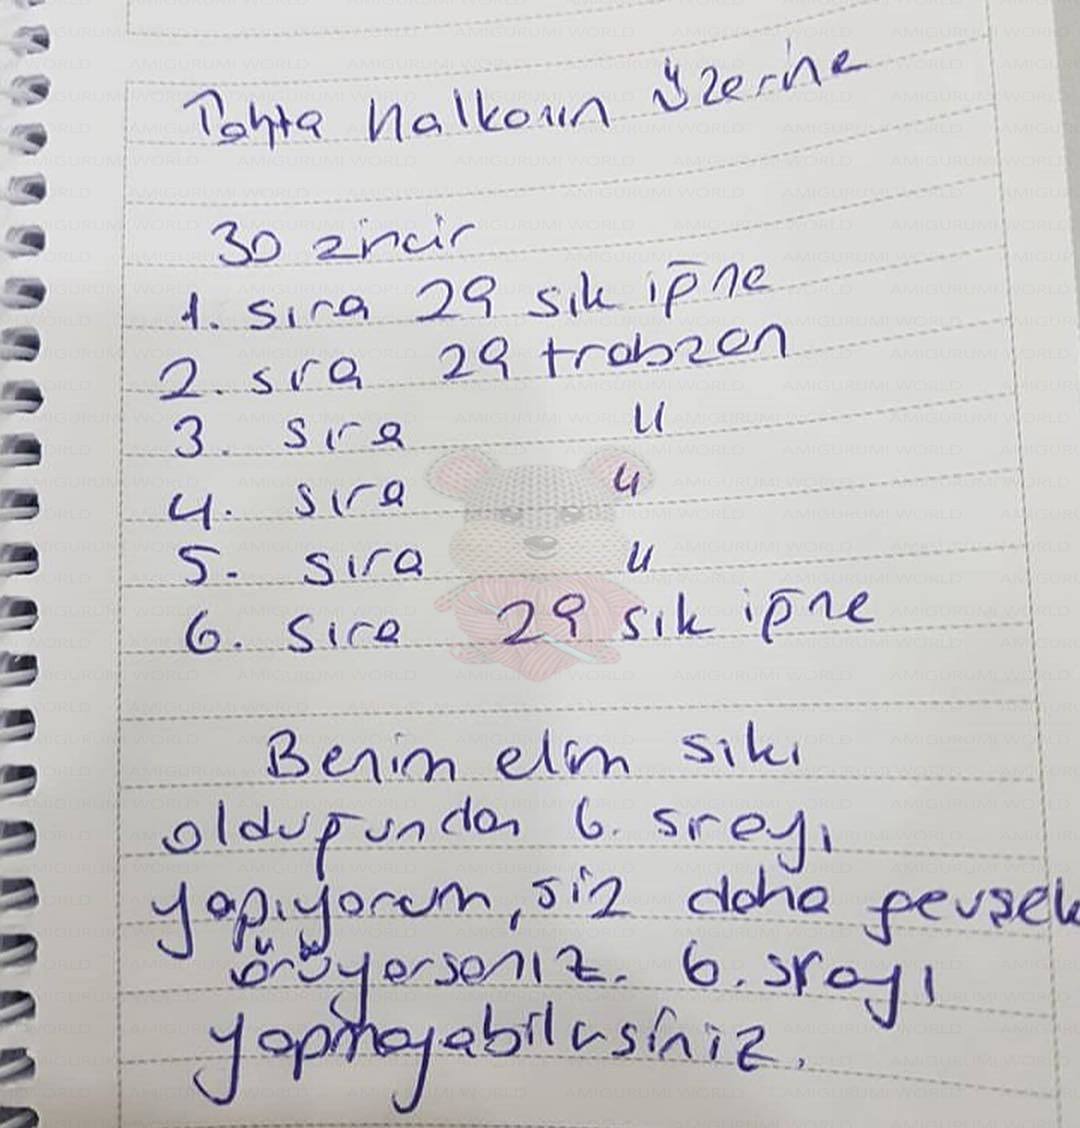 Tahta Halkanın Üzerine
30 zincir
1. sıra 29 sık iğne
2. sıra 29 trabzan
3. sıra "
4. sıra "
5. sıra "
6. sıra 29 sık iğne
Benim elim sıkı
olduğundan 6. sırayı
yapıyorum, siz daha gevşek
örüyorsanız. 6. sırayı
yapmayabilirsiniz.